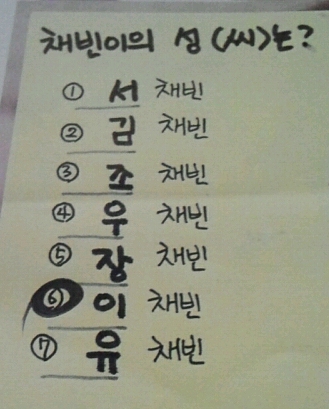 채빈이의 성(씨)는?
① 서 채빈
② 김 채빈
③ 조 채빈
④ 우 채빈
⑤ 장 채빈
⑥ 이 채빈
⑦ 유 채빈